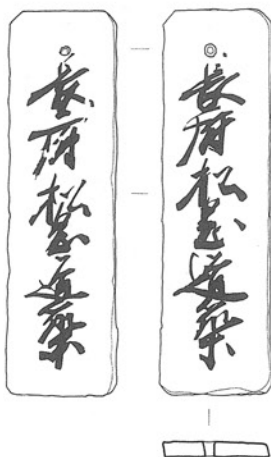 長府松道
長府松道